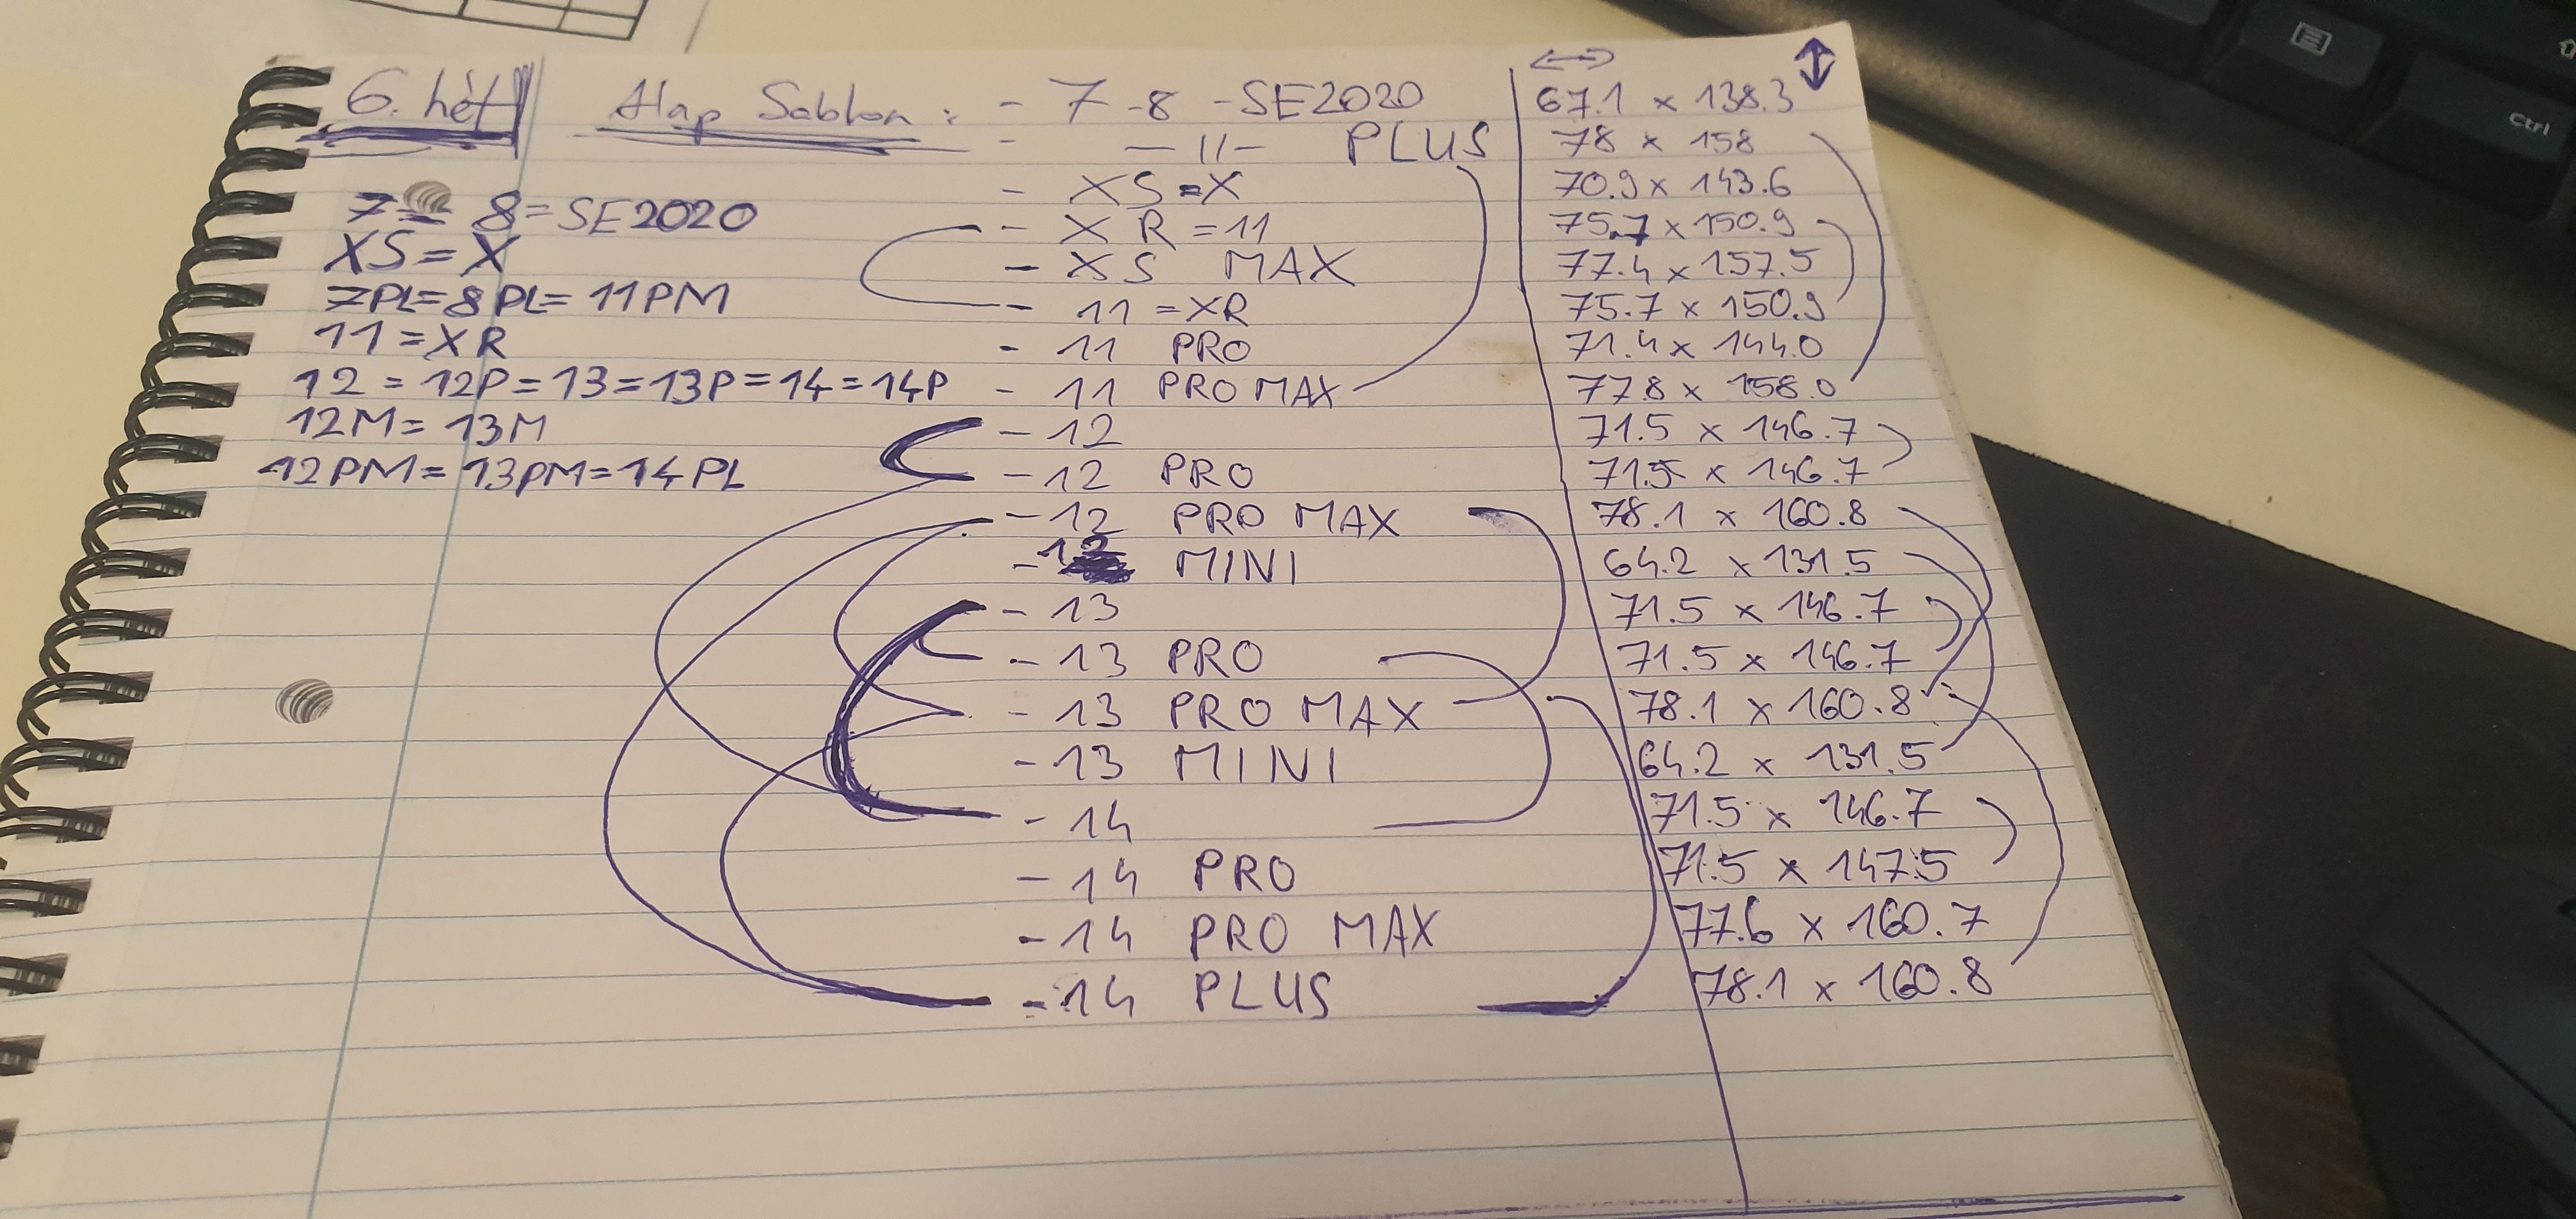 6. hét
Alap Sablon: - 7 -8 -SE2020 67.1 x 138.3
- -11- PLUS 78 x 158
- XS=X 70.9 x 143.6
- XR=11 75.7 x 150.9
- XS MAX 77.4 x 157.5
- 11=XR 75.7 x 150.9
- 11 PRO 71.4 x 144.0
- 11 PRO MAX 77.8 x 158.0
- 12 71.5 x 146.7
- 12 PRO 71.5 x 146.7
- 12 PRO MAX 78.1 x 160.8
- 12 MINI 64.2 x 131.5
- 13 71.5 x 146.7
- 13 PRO 71.5 x 146.7
- 13 PRO MAX 78.1 x 160.8
- 13 MINI 64.2 x 131.5
- 14 71.5 x 146.7
- 14 PRO 71.5 x 147.5
- 14 PRO MAX 77.6 x 160.7
- 14 PLUS 78.1 x 160.8
7= 8=SE2020
XS=X
7PL=8PL=11PM
11=XR
12=12P=13=13P=14=14P
12M=13M
12PM=13PM=14PL
Ctrl